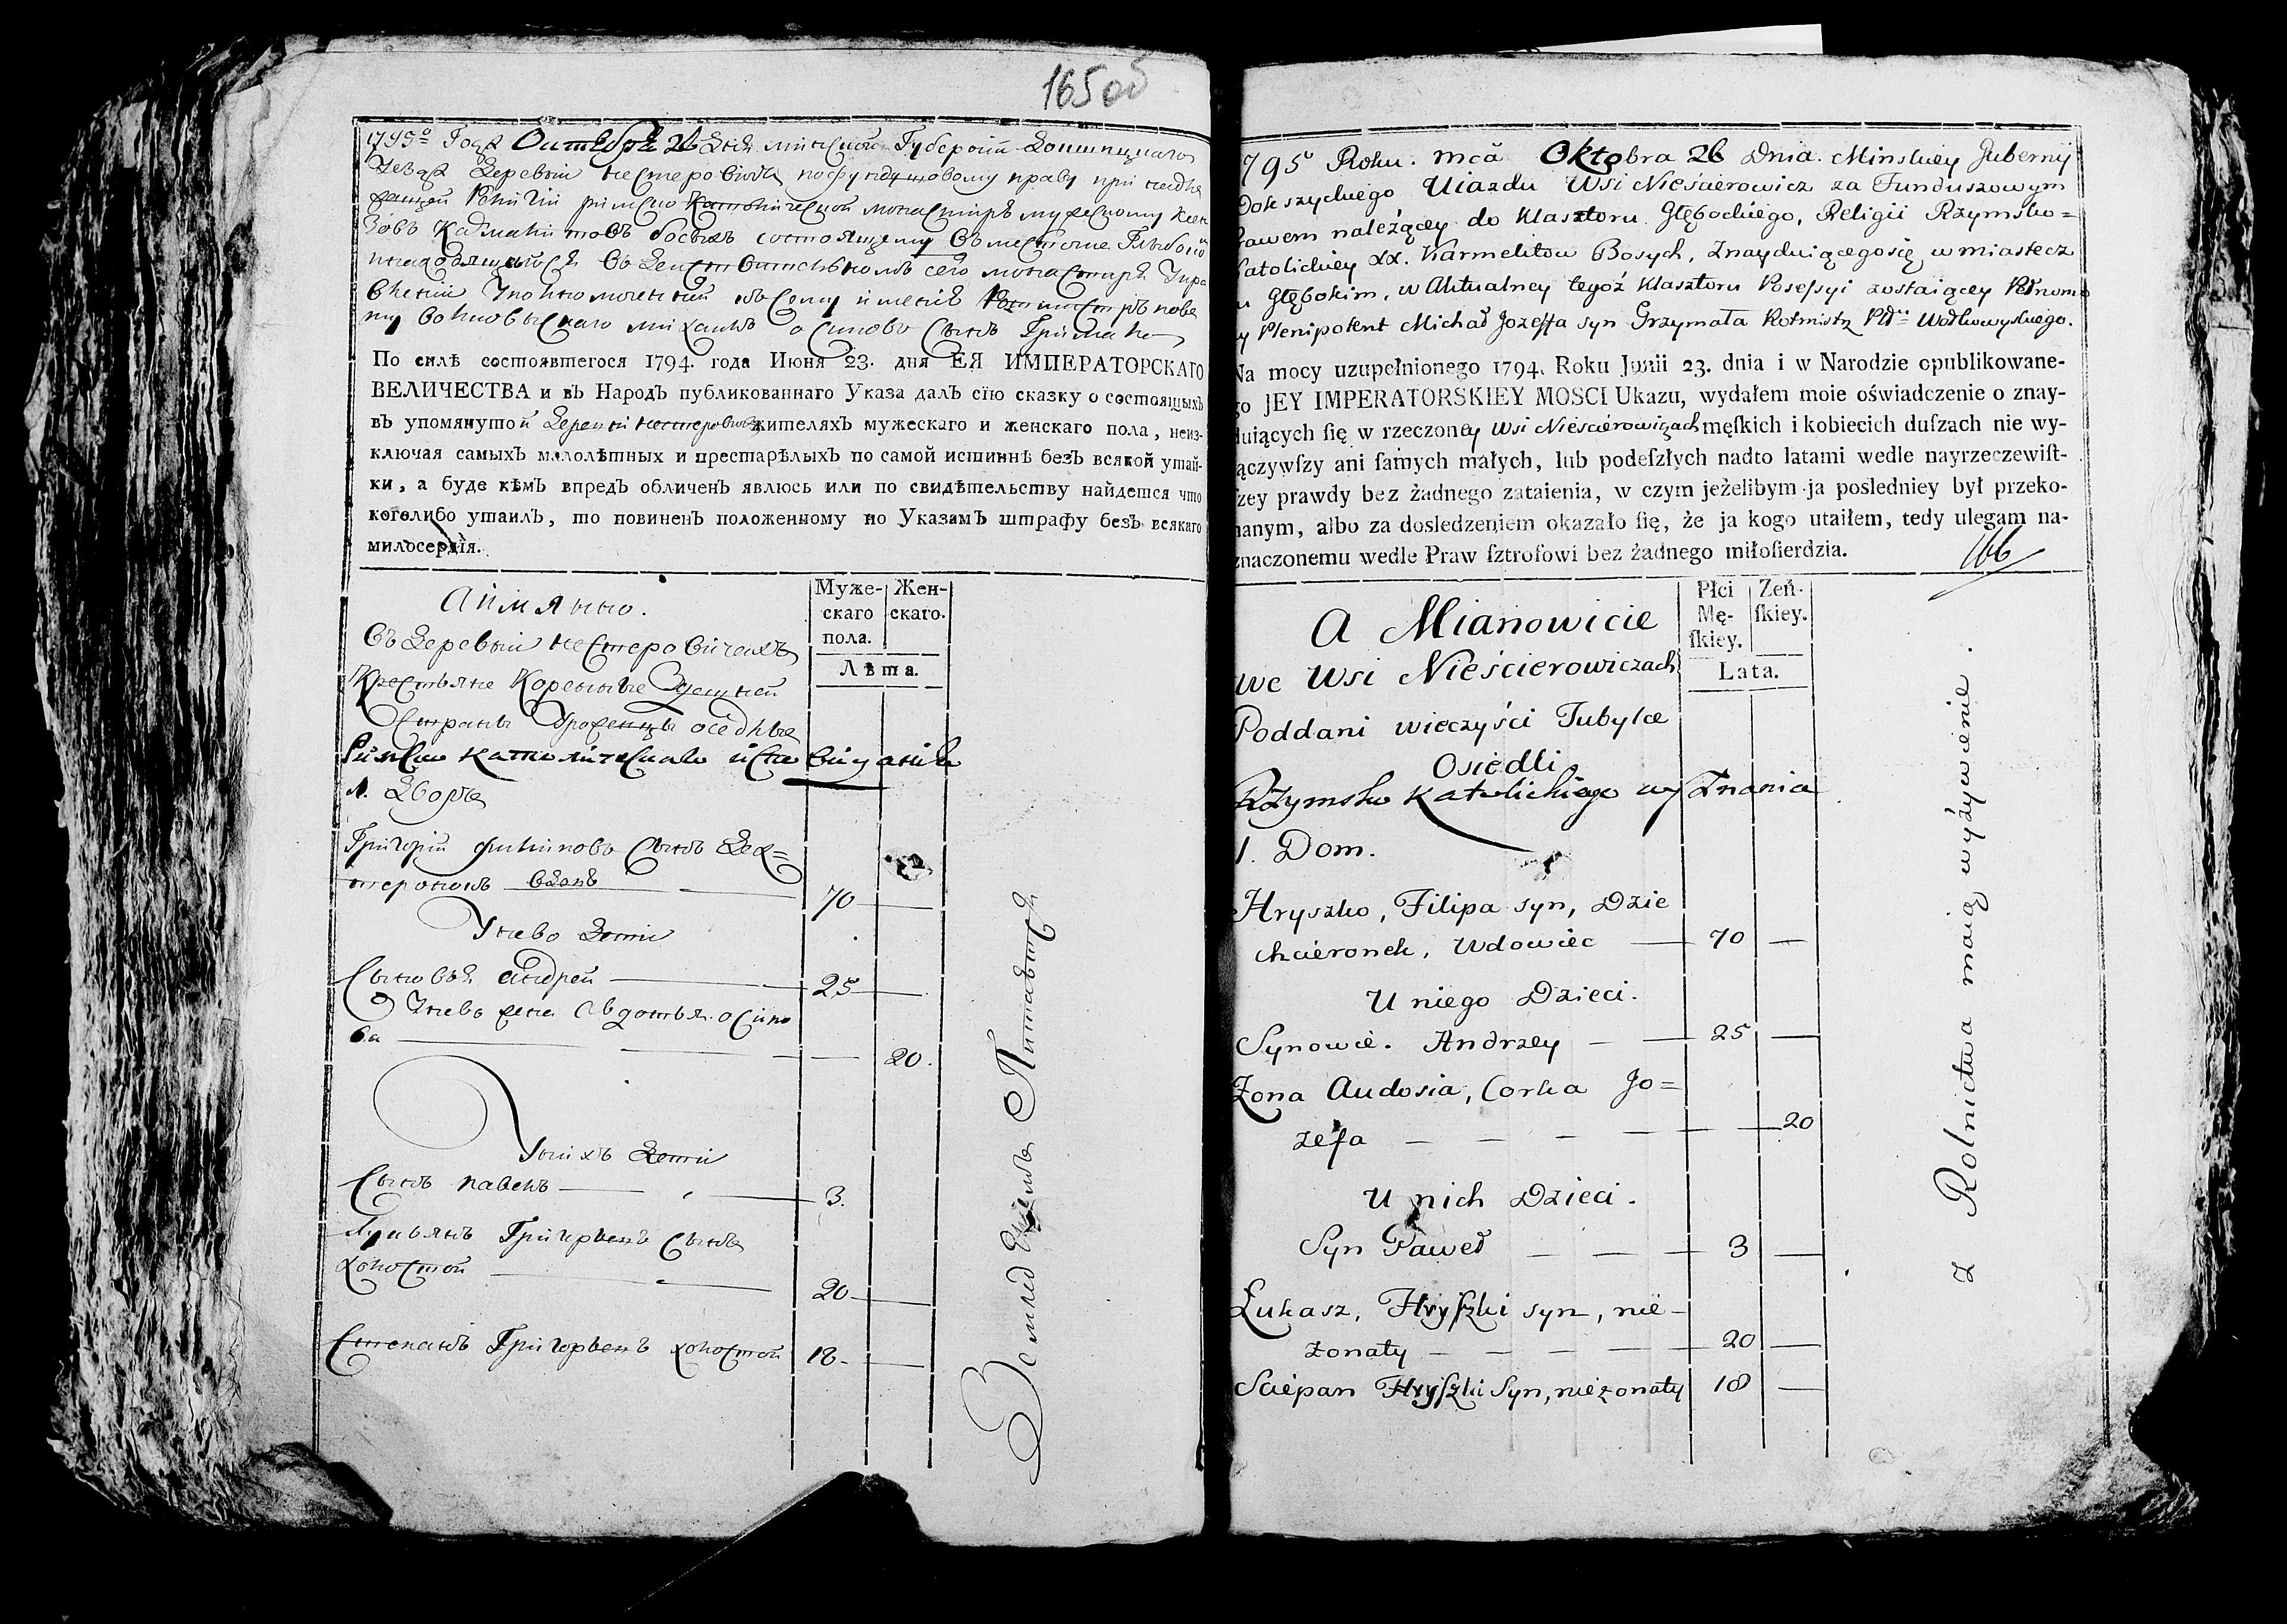 165 об
1795º Года Октября 26 Дня минской Губерний Докшицкаго
уезда Деревни Нестеровичь по фундушовому праву принадле
жащей Религии римско Католической монастирю мужескому Ксен
зовъ Кармелитовъ босыхъ состоящему въ местечке Глыбокой
находящейся въ Действительномъ сего монастиря Упра
влении Уполномоченный въ сему имению Ротмистръ пове
ту Волковыскаго михаилъ осиповъ Сынъ Гримала
По силѣ состоявшегося 1794. года Июня 23. дня ЕЯ ИМПЕРАТОРСКАГО
ВЕЛИЧЕСТВА и въ Народъ публикованнаго Указа далъ сїю сказку о состоящыхъ
въ упомянутой Деревни Нестеровичъ жителяхъ мужескаго и женскаго пола, неиз-
ключая самыхъ малолѣтныхъ и престарѣлыхъ по самой истиннѣ безъ всякой утай-
ки, а буде кѣмъ впредъ обличенъ явлюсь или по свидѣтельству найдется что
коголибо утаилъ, то повиненъ положенному по Указамъ штрафу безъ всякаго
милосердїя.
Муже-
скаго
пола.
Жен-
скаго.
Лѣта.
Аимянно.
Въ Деревни Нестеровичахъ
Крестьяне Коренные Здешней
Страны Уроженцы оседлые
Римско католическаго исповидания
1. Дворъ
Григорий филиповъ Сынъ Дех=
теронокъ вдовъ 70
У нево Дети
Сыновья андрей 25
У нево жена Авдотья осипо
ва 20.
У нихъ Дети
Сынъ павелъ 3.
Лукьянъ Григорьевъ Сынъ
холостой 20
Степанъ Григорьевъ холостой 18
Землед Елиемъ Питаются
795º Roku. mcă Oktobra 26 Dnia. Minskiey Gubernij
Dokszyckiego Uiazdu Wsi Nieścierowicz za Funduszowym
Prawem należącey do Klasztoru Głębockiego, Religii Rzymsko=
Katolickiey XX. Karmelitow Bosych, Znayduiącegosię w miastecz
u Głębokim, w Aktualney tegoż Klasztoru Posessyi zostaiącey Pełnomo
y Plenipotent Michał Jozeffa syn Grzymała Rotmistrz Pttu Wołkowyskiego.
Na mocy uzupełnionego 1794. Roku Junii 23. dnia i w Narodzie opublikowane-
go JEY IMPERATORSKIEY MOSCI Ukazu, wydałem moie oświadczenie o znay-
duiących ſię w rzeczoney Wsi Nieścierowiczach męſkich i kobiecich duſzach nie wy-
ączywſzy ani ſamych małych, lub podeſzłych nadto latami wedle nayrzeczewiſt-
ſzey prawdy bez żadnego zataienia, w czym jeżelibym ja posledniey był przeko-
nanym, albo za dosledzeniem okazało ſię, że ja kogo utaiłem, tedy ulegam na-
znaczonemu wedle Praw ſztrofowi bez żadnego miłoſierdzia.
166
Płci
Mę-
ſkiey.
Żeń-
ſkiey.
Lata.
A Mianowicie
We Wsi Nieścierowiczach
Poddani wieczyści Tubylce
Osiedli
Rzymsko Katolickiego wyznania
1. Dom.
Hryszko, Filipa syn, Dzie
chcieronek, Wdowiec 70
U niego Dzieci.
Synowie. Andrzey 25
Żona Audosia, Corka Jo=
zefa 20
U nich Dzieci.
Syn Paweł 3
Łukasz, Hryſzki syn, nie-
żonaty 20
Sciepan Hryſzki Syn, nieżonaty 18
z Rolnictwa maią wyżywienie.